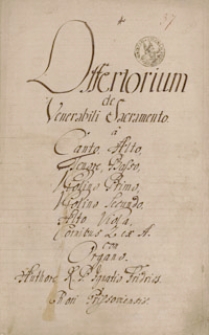 Offertorium
de
Venerabili Sacramento.
à
Canto, Alto,
Tenore, Basso,
Violino Primo,
Violino Secundo,
Alto Viola,
Cornibus 2. ex A.
con
Organo.
Authore R. P. Ignatio